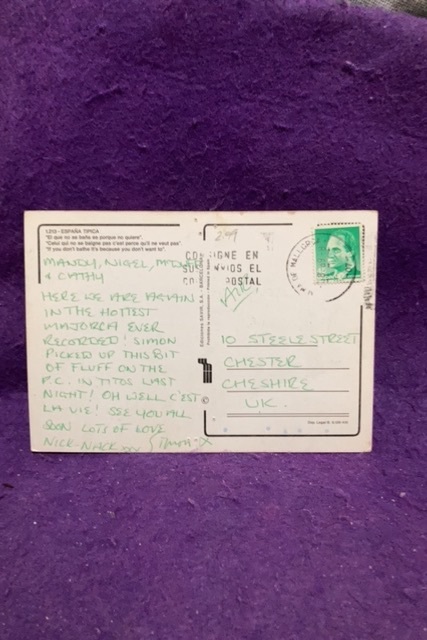 1.313 - ESPAÑA TIPICA
"El que no se baña es porque no quiere".
"Celui qui ne se baigne pas c'est parce qu'il ne veut pas".
"If you don't bathe it's because you don't want to".
MANDY, NIGEL,
& CATHY
HERE WE ARE AGAIN
IN THE HOTTEST
MAJORCA EVER
RECORDED! SIMON
PICKED UP THIS BIT
OF FLUFF ON THE
P.C. IN TITOS LAST
NIGHT! OH WELL C'EST
LA VIE! SEE YOU ALL
SOON LOTS OF LOVE
NICK-NACK
CONSIGNE EN
SUS ENVIOS EL
POSTAL
AIR
10 STEELE STREET
CHESTER
CHESHIRE
UK.